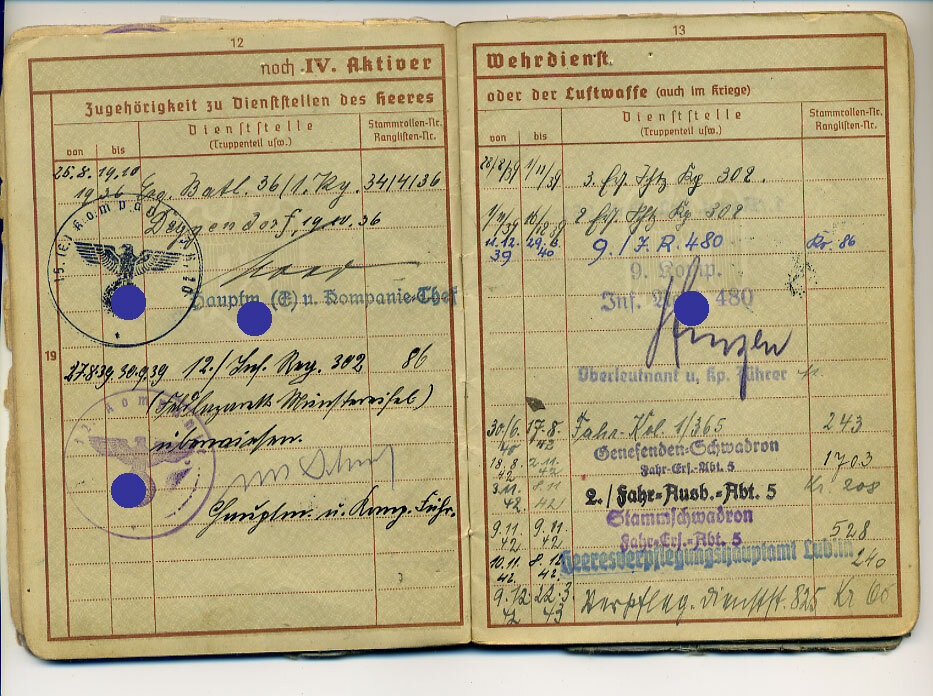 12
noch IV. Aktiver
Zugehörigkeit zu Dienststellen des Heeres
von
bis
Dienststelle
(Truppenteil usw.)
Stammrollen-Nr.
Ranglisten-Nr.
25.8. 19.10
1936 Erg. Batl. 36/1. Kp. 34/4/36
Deggendorf, 19.10.36
Hauptm. (E) u. Kompanie-Chef
19
27.8.39 30.9.39 12./Inf. Reg. 302 86
(Feldlazarett Münstereifel)
überwiesen.
Hauptm. u. Komp. Führ.
13
Wehrdienst
oder der Luftwaffe (auch im Kriege)
von
bis
Dienststelle
(Truppenteil usw.)
Stammrollen-Nr.
Ranglisten-Nr.
3. Kp. 302.
2 Kp 302
11.12. 39 29.6. 40 9./I.R. 480 Kr. 86
9. Komp.
Inf. 480
Oberleutnant u. Kp. Führer
30/6. 40 17.8. 42 Fahr-Kol. 1/365 243
Genesenden-Schwadron
18.8. 42 2.11. 42 Fahr-Ers.-Abt. 5 1703
3.11. 42 8.11 42 2./Fahr-Ausb.-Abt. 5 Kr. 208
Stammschwadron
9.11. 42 9.11. 42 Fahr-Ers.-Abt. 5 528
10.11. 42. 8.12 42. Heeresverpflegungshauptamt Lublin 240
9.12 42 22.3. 43 Verpfleg. Dienstst. 825 Kr 60